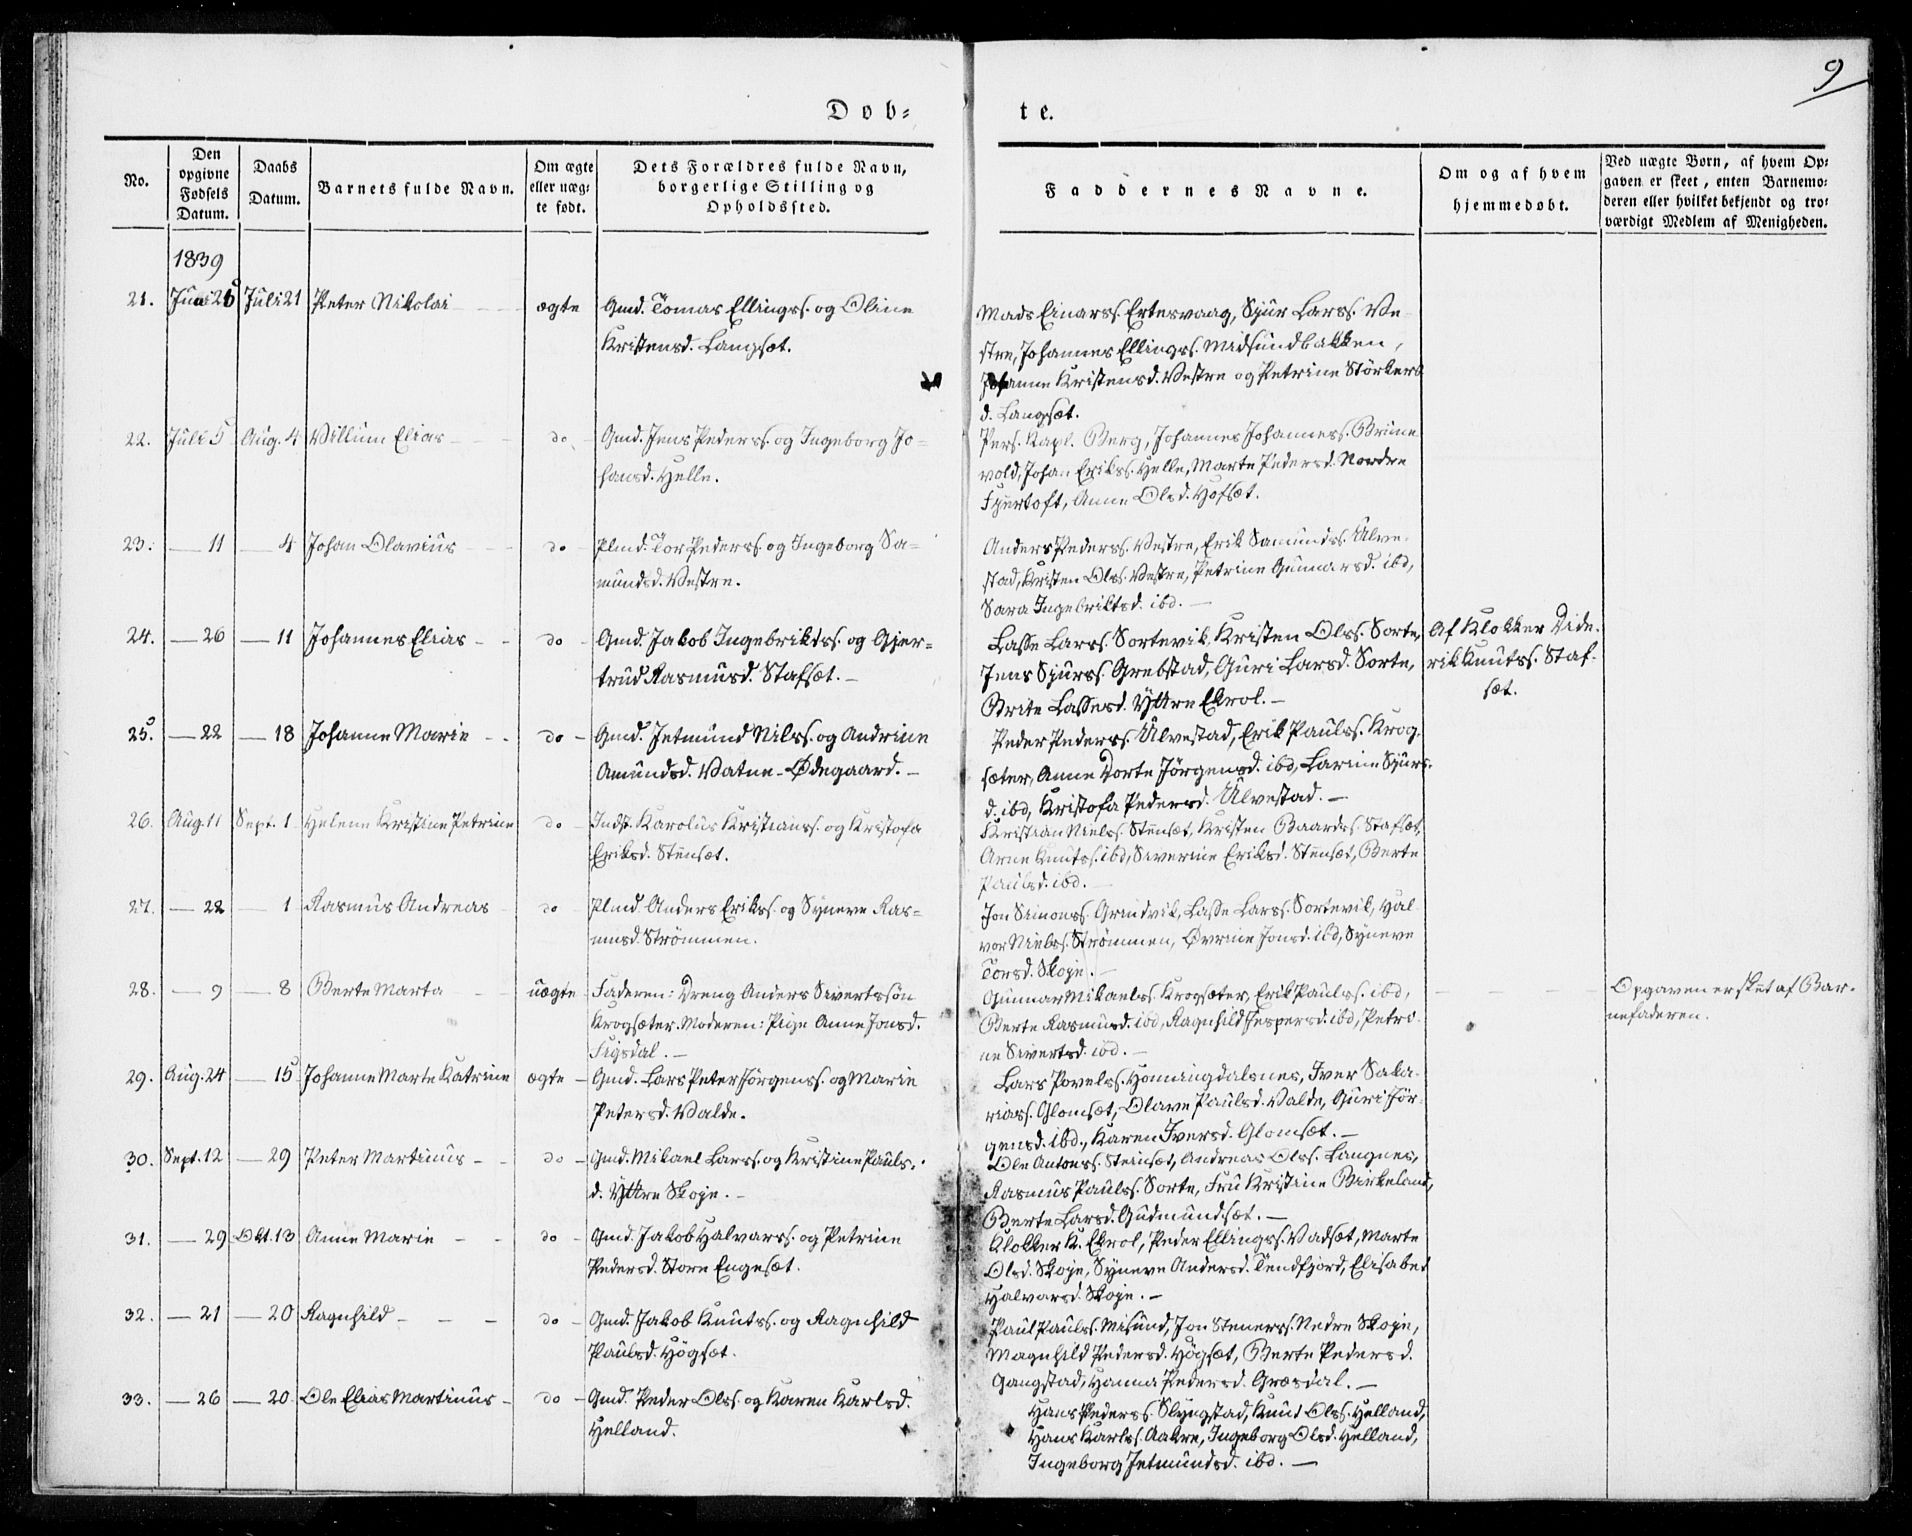 9
Dob- te.
No.
Den opgivne Fødsels Datum.
Daabs Datum.
Barnets fulde Navn.
Om ægte eller uægte født.
Dets Forældres fulde Navn, borgerlige Stilling og Opholdssted.
Faddernes Navne.
Om og af hvem hjemmedøbt.
Ved uægte Børn, af hvem Op-
gaven er skeet, enten Barnemo-
deren eller hvilket bekjendt og tro-
værdigt Medlem af Menigheden.
1839
21. Juli 21 Peter Nikolai ægte Gmd. Tomas Ellingss. og Oline
Kristensd. Langsæt.
Mads Einarss. Ertesvaag, Sjur Larss. Ve-
stre, Johannes Ellingss. Midsundbakken,
Johanne Kristensd. Vestre og Petrine Störkers
d. Langsæt.
22. Juli 5 Aug. 4 Villum Elias do Gmd. Jens Pederss. og Ingeborg Jo-
hansd. Helle.
Pers. Kapl. Berg, Johannes Johanness. Brune
vold, Johan Erikss. Helle, Marte Pedersd. Nordre
Fjørtoft, Anne Olsd. Hofsæt.
23. — 11 — 4 Johan Olavius do Plmd. Tor Pederss. og Ingeborg Sa-
mundsd. Vestre.
Anders Pederss. Vestre, Erik Samundss. Ulve-
stad, Kristen Olss. Vestre, Petrine Gunnarsd. ibd,
Sara Ingebriktsd. ibd. —
24. — 26 — 11 Johannes Elias do Gmd. Jakob Ingebriktss. og Gjer-
trud Rasmusd. Stafsæt. —
Lasse Larss. Sortevik, Kristen Olss. Sorte,
Jens Sjurss. Grebstad, Guri Larsd. Sorte,
Brite Lassesd. Yttre Ekrol. —
Af Klokker Dide-
rik Knutss. Staf-
sæt.
25. — 22 — 18 Johanne Marie do Gmd. Jetmund Nilss. og Andrine
Amundsd. Vatne-Ødegaard. —
Peder Pederss. Ulvestad, Erik Paulss. Krog-
sæter, Anne Dorte Jörgensd. ibd, Larine Sjurs-
d. ibd, Kristofa Pedersd. Ulvestad. —
26. Aug. 11 Sept. 1 Helene Kristine Petrine do Indst. Karolus Kristianss. og Kristofa
Eriksd. Stensæt.
Kristian Nielss. Stensæt, Kristen Baardss. Stafsæt,
Arne Knutss. ibd, Siverine Eriksd. Stensæt, Berte
Paulsd. ibd. —
27. — 22 — 1 Rasmus Andreas do Plmd. Anders Erikss. og Syneve Ras-
musd. Strömmen.
Jon Simonss. Grindvik, Lasse Larss. Sortevik, Hal-
vor Nielss. Strömmen, Øvrine Jonsd. ibd, Syneve
Torsd. Skoje. —
28. — 9 — 8 Berte Marta uægte Faderen: Dreng Anders Sivertssön
Krogsæter. Moderen: Pige Anne Jonsd.
Figsdal. —
Gunnar Mikaelss. Krogsæter, Erik Paulss. ibd,
Berte Rasmusd. ibd, Ragnhild Jespersd. ibd, Petri-
ne Sivertsd. ibd. —
Opgaven er skeet af Bar-
nefaderen.
29. Aug. 24 — 15 Johanne Marte Katrine ægte Gmd. Lars Peter Jörgenss. og Marie
Petersd. Valde.
Lars Povelss. Honningdalsnes, Iver Saka-
riass. Glomsæt, Olave Paulsd. Valde, Guri Jör-
gensd. ibd., Karen Iversd. Glomsæt. —
30. Sept. 12 — 29 Peter Martinus do Gmd. Mikael Larss. og Kristine Pauls-
d. Yttre Skoje. —
Ole Antonss. Steinsæt, Andreas Olss. Langnes,
Rasmus Paulss. Sorte, Fru Kristine Birkeland,
Berte Larsd. Gudmundsæt. —
31. — 29 Okt. 13 Anne Marie do Gmd. Jakob Halvarss. og Petrine
Pedersd. Store Engesæt.
Klokker K. Ekrol, Peder Ellingss. Vadsæt, Marte
Olsd. Skoje, Syneve Andersd. Tendfjord, Elisabet
Halvarsd. Skoje. —
32. — 21 — 20 Ragnhild do Gmd. Jakob Knutss. og Ragnhild
Paulsd. Högsæt.
Paul Paulss. Misund, Jon Stenerss. Nedre Skoje,
Magnhild Pedersd. Högsæt, Berte Pedersd.
Gangstad, Hanna Pedersd. Græsdal. —
33. — 26 — 20 Ole Elias Martinus do Gmd. Peder Olss. og Karen Karlsd.
Helland.
Hans Pederss. Slyngstad, Knud Olss. Helland,
Hans Karlss. Aakre, Ingeborg Olsd. Helland,
Ingeborg Jetmundsd. ibd. —